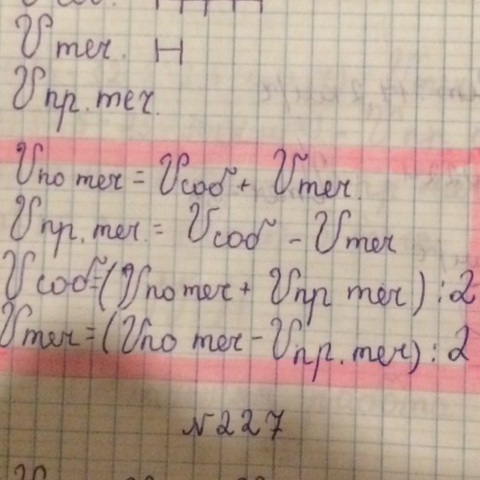 Vсоб.
Vтеч.
Vпр. теч.
Vпо теч = Vсоб + Vтеч.
Vпр. теч. = Vсоб - Vтеч
Vсоб = (Vпо теч + Vпр теч) : 2
Vтеч = (Vпо теч - Vпр. теч) : 2
№227